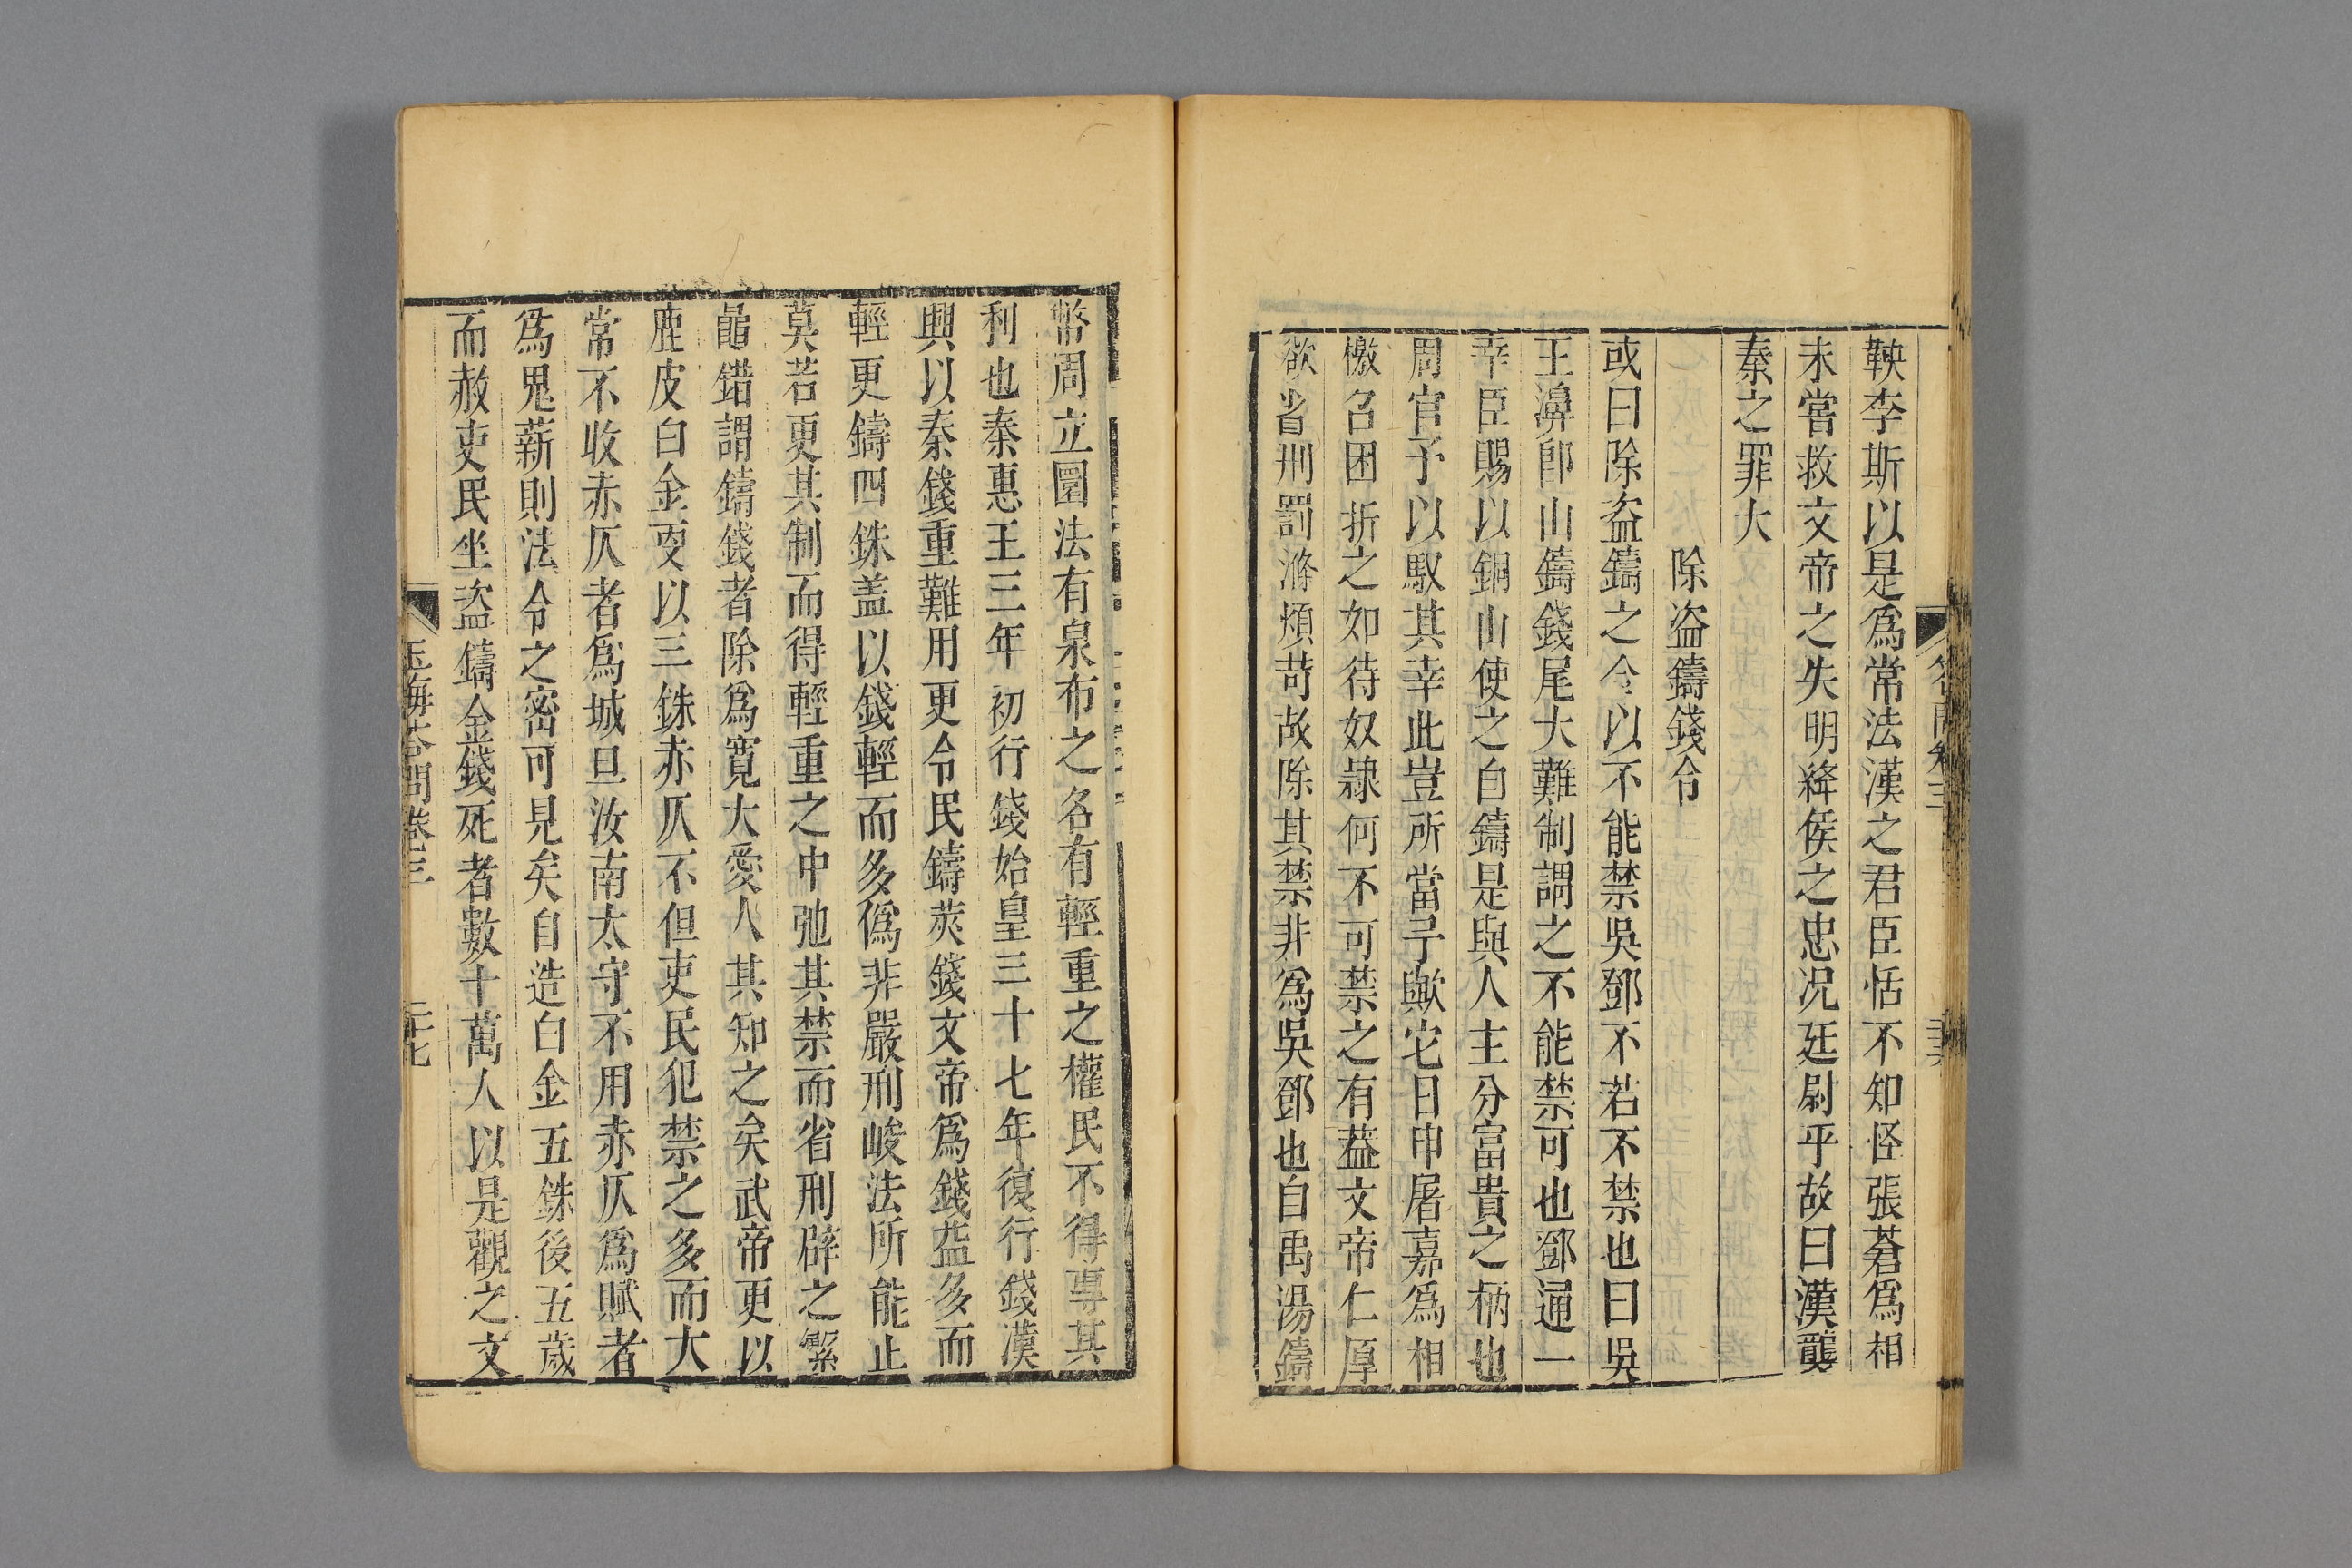 鞅李斯以是爲常法漢之君臣恬不知怪張蒼爲相
未嘗救文帝之失明絳侯之忠况廷尉乎故曰漢襲
秦之罪大
除盗鑄錢令
或曰除盗鑄之令以不能禁吳鄧不若不禁也曰吳
王濞卽山鑄錢尾大難制謂之不能禁可也鄧通一
幸臣賜以銅山使之自鑄是與人主分富貴之柄也
周官予以馭其幸此豈所當予歟它日申屠嘉爲相
檄召困折之如待奴隷何不可禁之有葢文帝仁厚
欲省刑罰滌煩苛故除其禁非爲吳鄧也自禹湯鑄
幣周立圜法有泉布之名有輕重之權民不得專其
利也秦惠王三年初行錢始皇三十七年復行錢漢
興以秦錢重難用更令民鑄莢錢文帝爲錢益多而
輕更鑄四銖盖以錢輕而多僞非嚴刑峻法所能止
莫若更其制而得輕重之中弛其禁而省刑辟之繁
鼂錯謂鑄錢者除爲寛大愛人其知之矣武帝更以
鹿皮白金更以三銖赤仄不但吏民犯禁之多而大
常不收赤仄者爲城旦汝南太守不用赤仄爲賦者
爲鬼薪則法令之密可見矣自造白金五銖後五歲
而赦吏民坐盗鑄金錢死者數十萬人以是觀之文
玉海荅問卷三
二十七